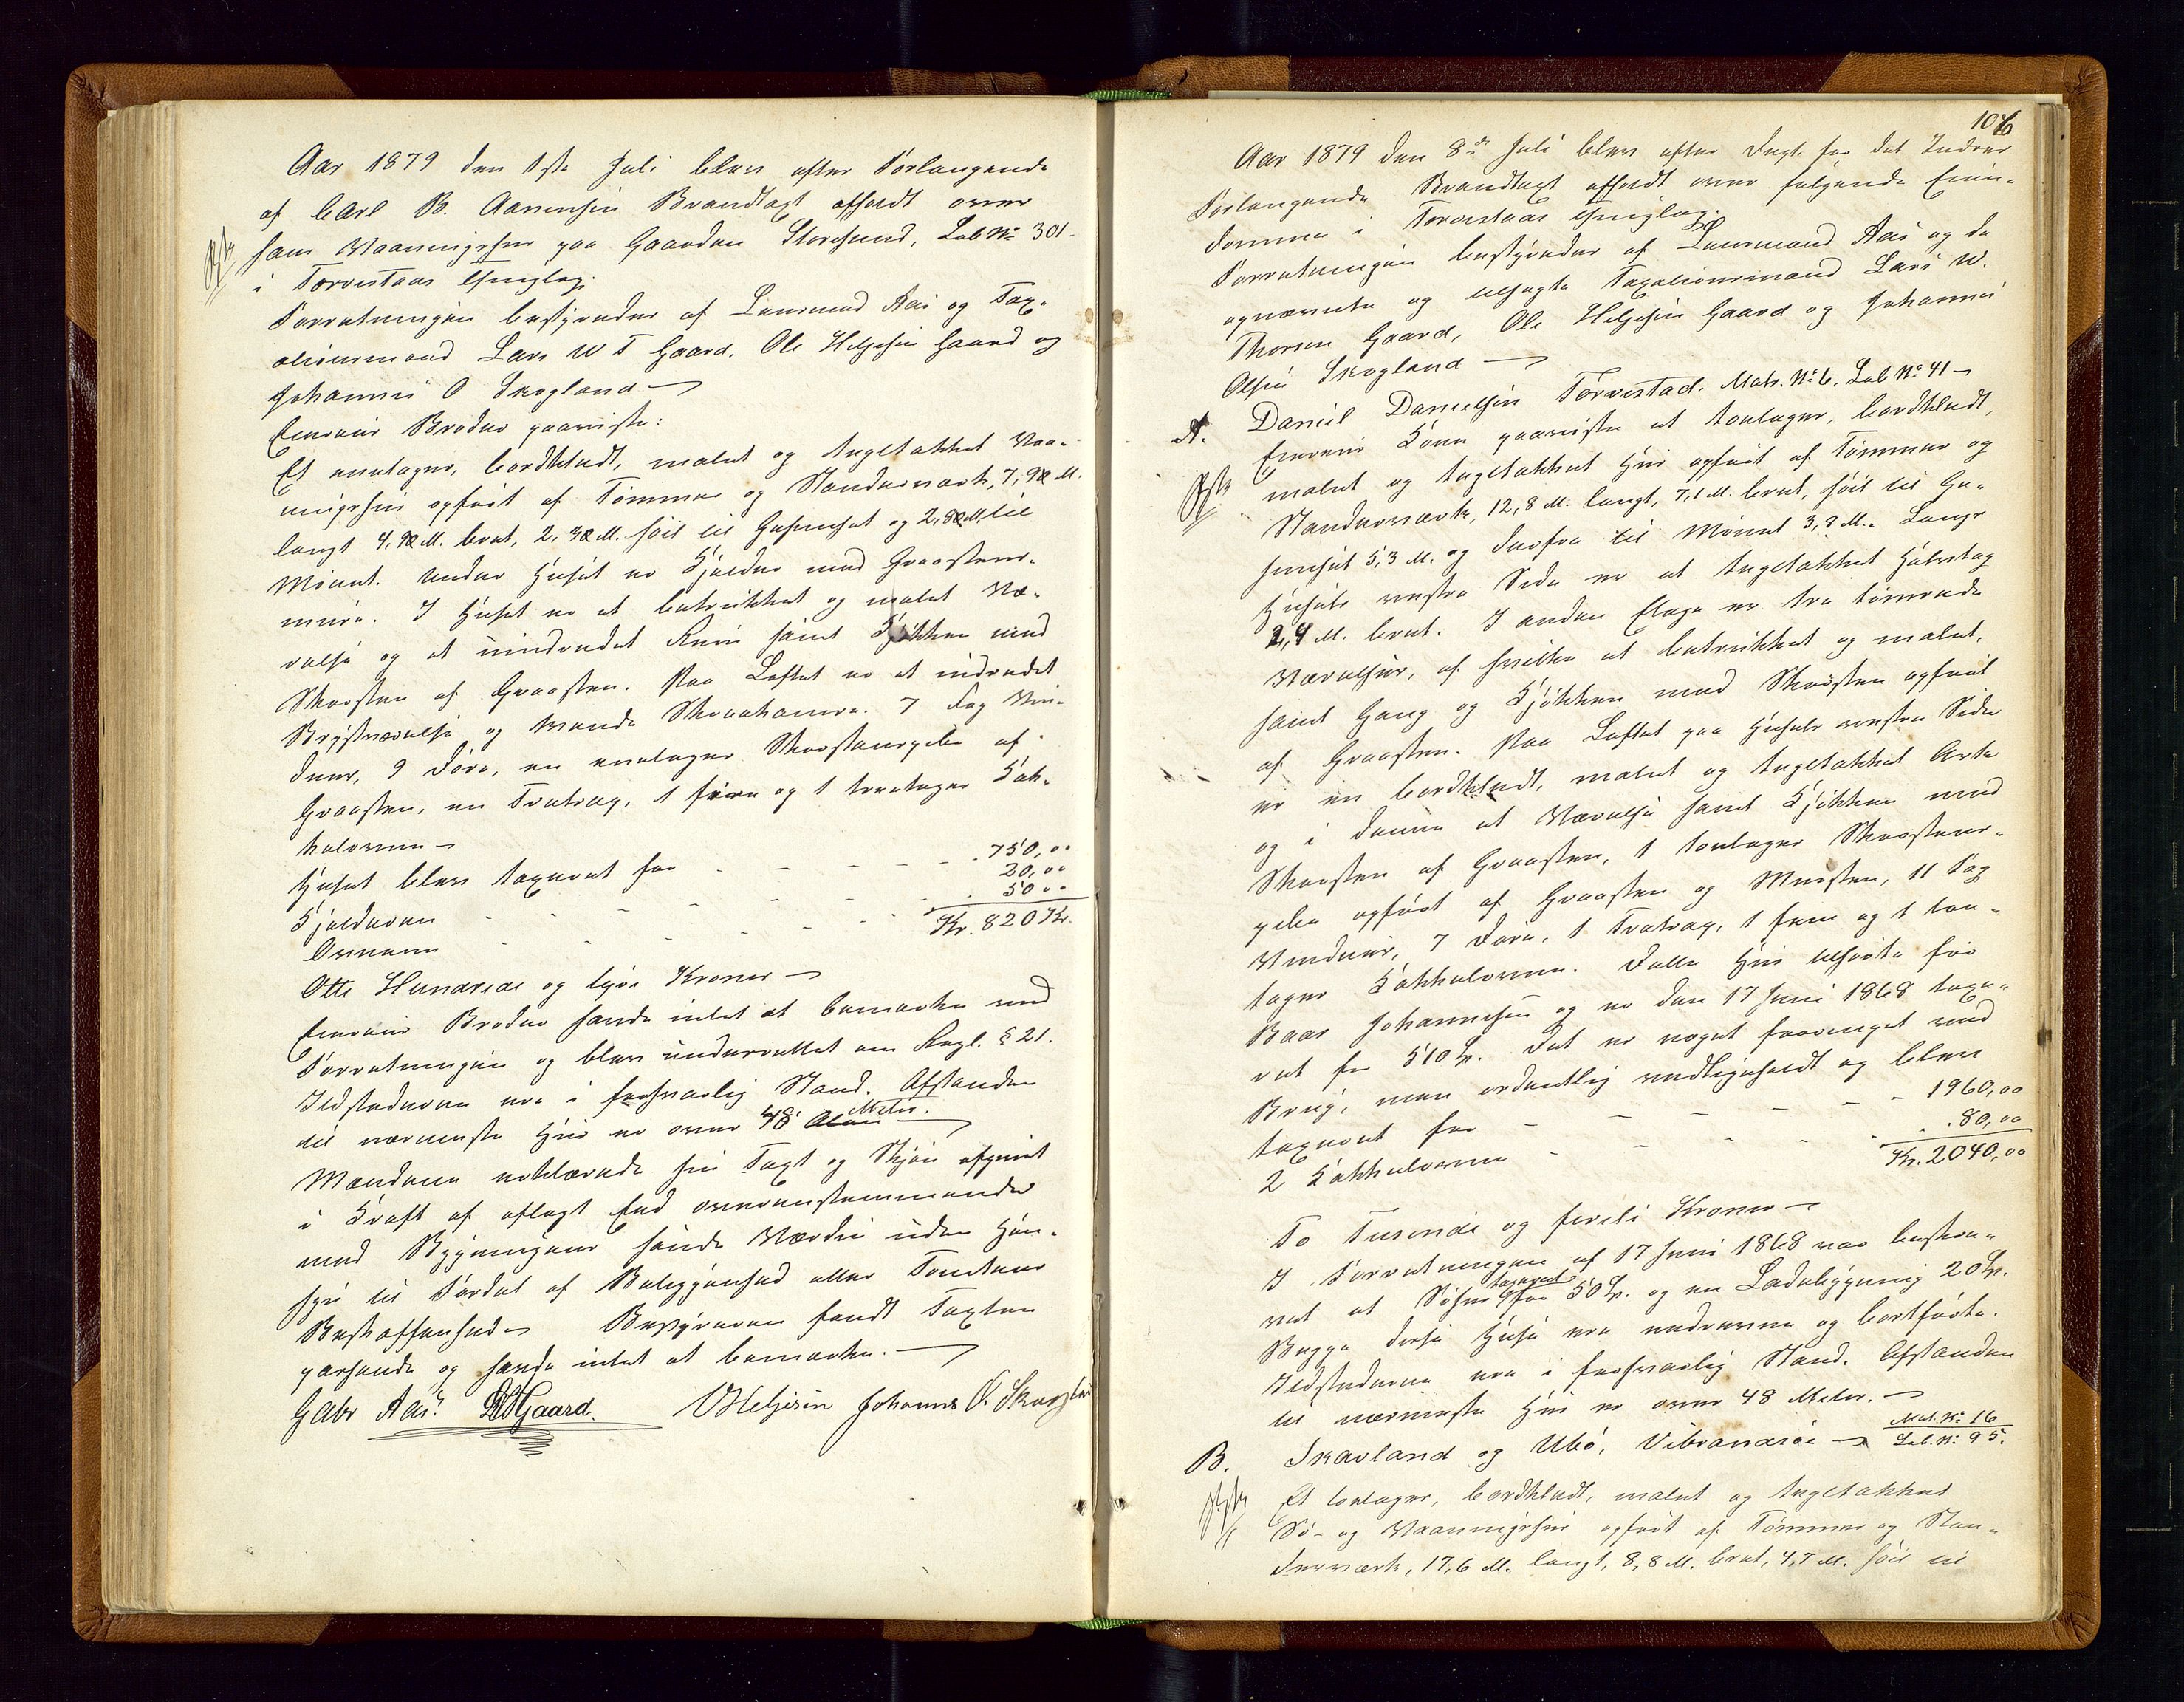 Aar 1879 den 1ste Juli blev efter Forlangende
af Carl B. Aanensen Brandtaxt afholdt over
hans Vaaningshus paa Gaarden Storesund, Løb No 301
i Torvestads Thinglag.
Forretningen bestyredes af Lensmand Aas og Tax-
ationsmænd Lars W T Gaard, Ole Helgesen Gaard og
Johannes O Skogland
Eierens Broder paaviste:
Et enetages, bordklædt, malet og tægltækket Vaa-
ningshus opført af Tømmer og Stænderværk, 7,92 M.
langt 4,92 M. bredt, 2,32 M. høit til Gesimset og 2,82 M. til
Mønet. Under Huset er Kjelder med Graasteens-
mure. I Huset er et betrukket og malet Væ-
relse og et uindredet Rum samt Kjøkken med
Skorsten af Graasten. Paa Loftet er et indredet
Brystværelse og tvende Skraakamre. 7 Fag Vin-
duer, 9 Døre, en enetages Skorstenspibe af
Graasten, en Trætrap, 1 f og 1 treetages Kak-
kelovne
Huset blev taxeret for - - - - - 750,00
Kjelderen - - - - 20,00
Ovnene - - - - 50 00
Kr. 820 Kr.
Otte Hundrede og tyve Kroner
Eierens Broder havde intet at bemærke ved
Forretningen og blev underrettet om Regl. § 21.
Ildstederne ere i forsvarlig Stand. Afstanden
til nærmeste Hus er over 48 Meter.
Mændene erklærede sin Taxt og Skjøn afgivet
i Kraft af aflagt Eed overensstemmende
med Bygningens sande Værdi uden Hen-
syn til Fordel af Beliggenhed eller Tomtens
Beskaffenhed. Bestyreren fandt Taxten
passende og havde intet at bemærke.
Gabr Aas. LWTGaard. OHelgesen Johannes O. Skogland
106
Aar 1879 den 8de Juli blev efter Dept. for det Indres
Forlangende Brandtaxt afholdt over følgende Eien-
domme i Torvestads Thinglag.
Forretningen bestyredes af Lensmand Aas og de
opnævnte og tilsagte Taxationsmænd Lars W.
Thorsen Gaard, Ole Helgesen Gaard og Johannes
Olsen Skogland
A. Daniel Danielsen Torvestad. Matr. No 6, Løb No 41
Eierens Kone paaviste et toetages, bordklædt,
malet og tægltækket Hus opført af Tømmer og
Stænderværk, 12,8 M. langt, 7,1 M. bredt, høit til Ge-
simset 5,3 M. og derfra til Mønet 3,3 M. Langs
Husets vestre Side er et tægltækket Halvtag
2,4 M. bredt. I anden Etage er tre tømrede
Værelser, af hvilke et betrukket og malet,
samt Gang og Kjøkken med Skorsten opført
af Graasten. Paa Loftet paa Husets vestre Side
er en bordklædt, malet og tægltækket Ark
og i denne et Værelse samt Kjøkken med
Skorsten af Graasten, 1 toetages Skorstens-
pibe opført af Graasten og Mursten, 11 Fag
Vinduer, 7 Døre, 1 Trætrap, 1 fem og 1 toe-
tages Kakkelovne. Dette Hus tilhørte før
Baar Johannesen og er den 17 Juni 1868 taxe-
ret for 510 Sp. Det er noget forringet ved
Brug, men ordentlig vedligeholdt og blev
taxeret for - - - - - 1960,00
2 Kakkelovne - - - - 80,00
Kr. 2040,00
To Tusinde og firti Kroner
I Forretningen af 17 Juni 1868 var beskre-
vet et Søhus taxeret for 50 Sp. og en Ladebygning 20 Sp.
Begge disse Huse ere nedrevne og bortførte.
Ildstederne ere i forsvarlig Stand. Afstanden
til nærmeste Hus er over 48 Meter.
B. Skavland og Ubø, Vibrandsø Mat. No 16
Løb. No 95.
Et toetages, bordklædt, malet og tægltækket
Sø- og Vaaningshus opført af Tømmer og Stæn-
derværk, 17,6 M. langt, 8,8 M. bredt, 4,7 M. høit til